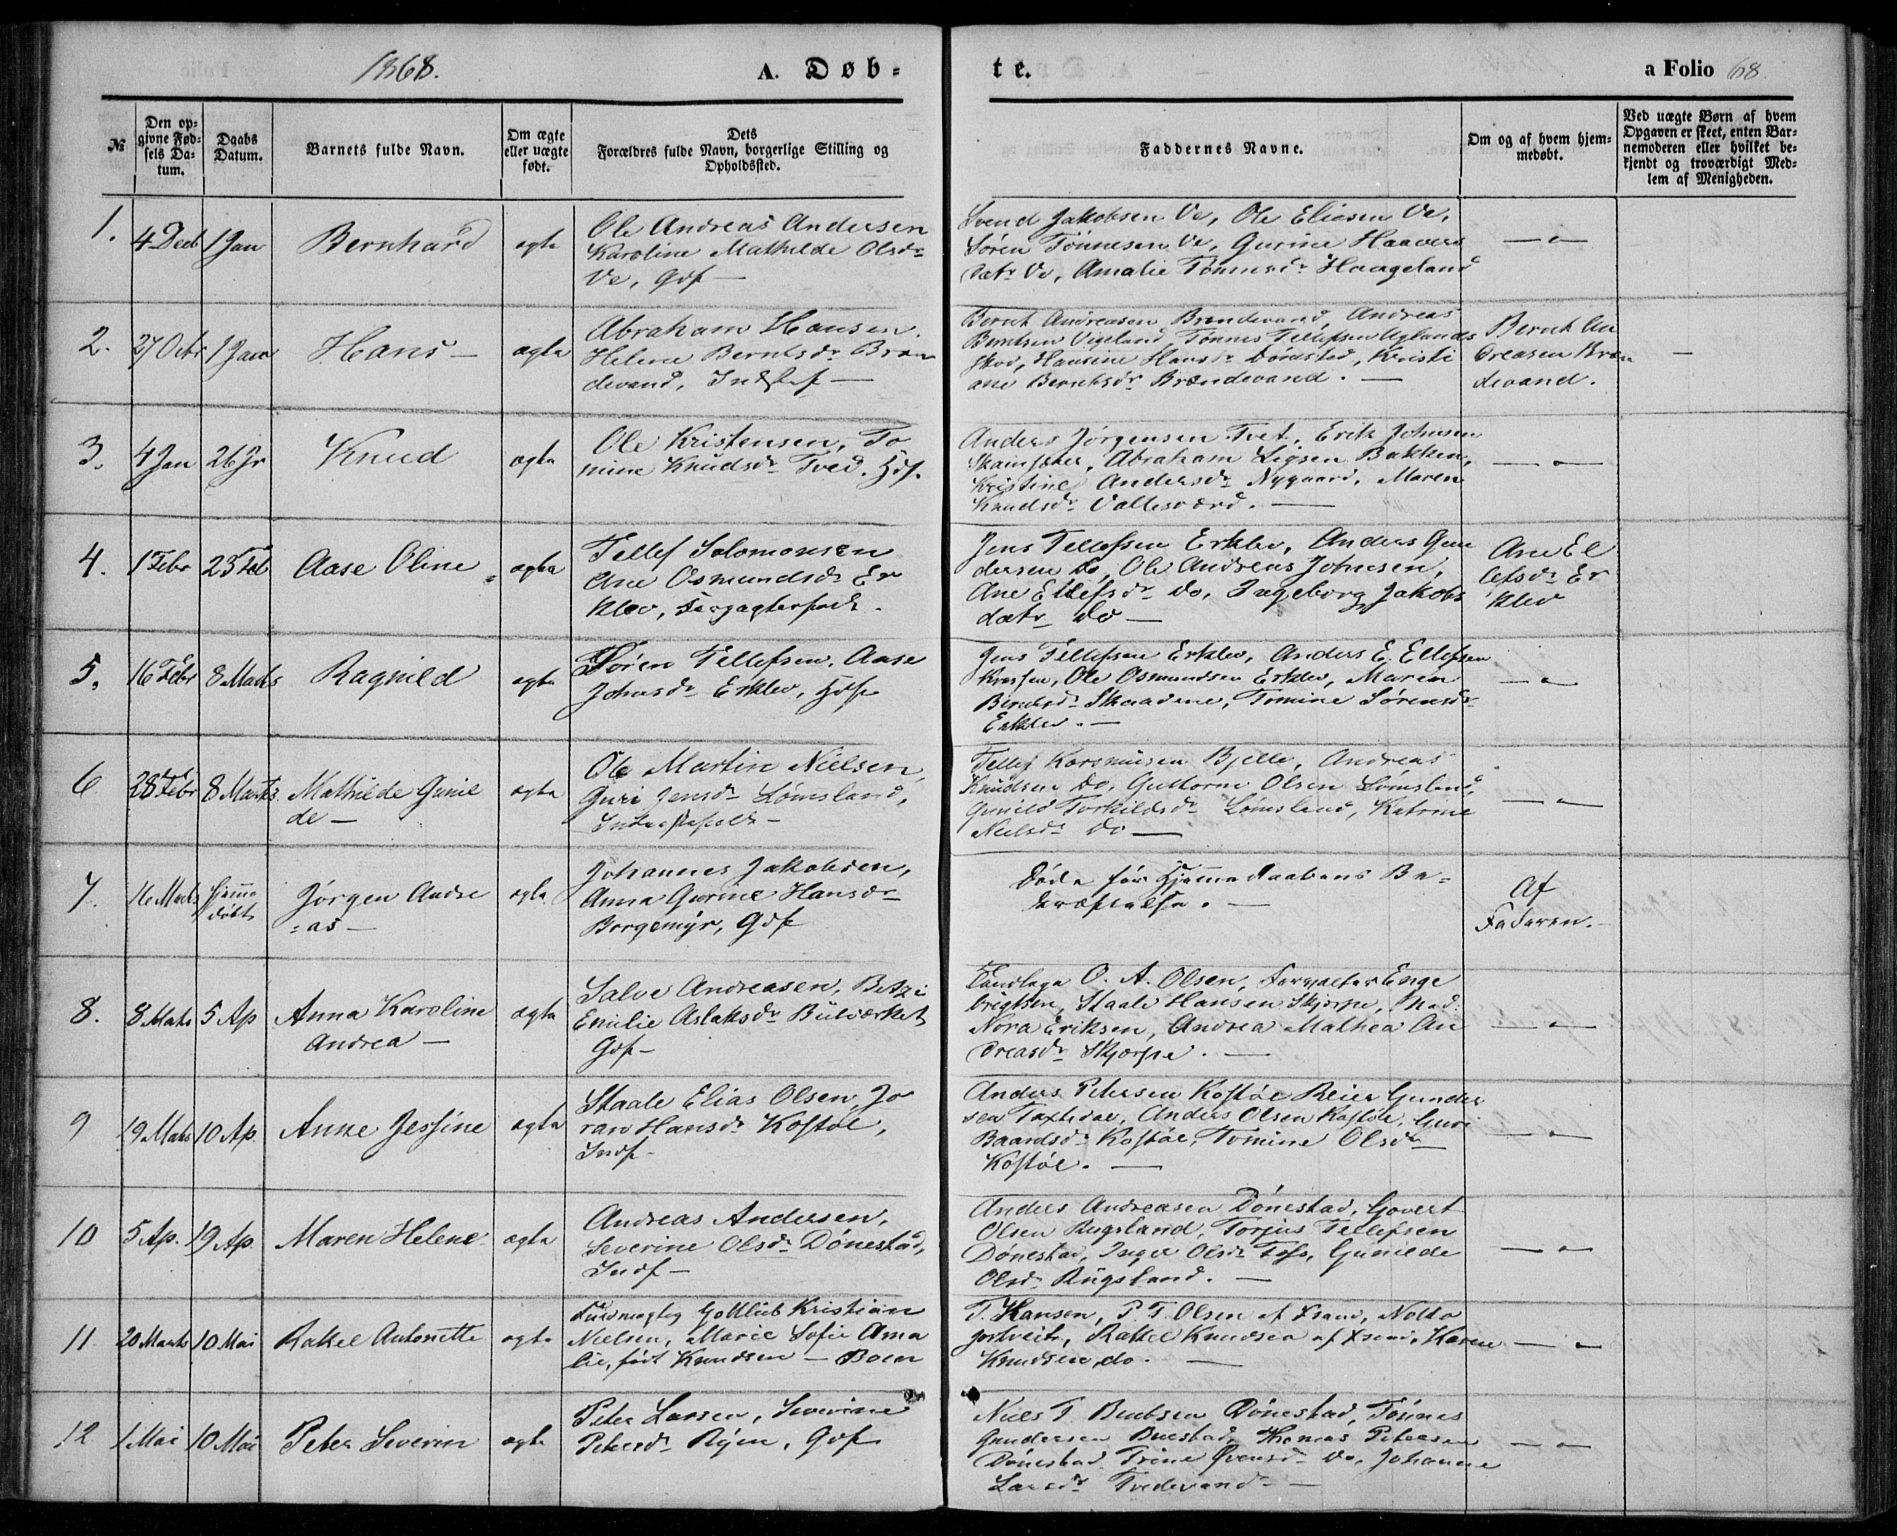 1868.
A. Døb=
te.
a Folio 68.
№
Den op=
givne Fød=
sels Da=
tum.
Daabs
Datum.
Barnets fulde Navn.
Om ægte
eller uægte
født.
Dets
Forældres fulde Navn, borgerlige Stilling og
Opholdssted.
Faddernes Navne.
Om og af hvem hjem=
medøbt.
Ved uægte Børn af hvem
Opgaven er skeet, enten Bar=
nemoderen eller hvilket be=
kjendt og troværdigt Med=
lem af Menigheden.
1.
4 Decb
1 Jan
Bernhard
ægte
Ole Andreas Andersen
Karoline Mathilde Olsdr
Ve, Gdf
Svend Jakobsen Ve, Ole Eliesen Ve,
Sören Tönnesen Ve, Gurine Haavors
datr Ve, Amalie Tönnesdr Haageland
2.
27 Octbr
1 Jan
Hans
ægte
Abraham Hansen
Helene Berntsdr Bræn
devand, Indstf
Bernt Andreasen Brændevand, Andreas
Berntsen Vigeland, Tönnes Tellefsen Uglands
skov, Hansine Hansdr Dönestad, Kristi
ane Berntsdr Brændevand.
Bernt An
dreasen Bræn
devand.
3.
4 Jan
26 Jr
Knud
ægte
Ole Kristensen, To
mine Knudsdr Tved. Gdf.
Anders Jörgensen Tvet, Erik Johnsen
Abraham Ligsen Bakken,
Kristine Andersdr Nygaard, Maren
Knudsdr Vallesværd.
4.
1 Febr
23 Feb
Aase Oline
ægte
Tellef Solomonsen
Ane Osmundsdr Er
klev, Forpagterfolk.
Jens Tellefsen Erklev, Anders Gun
dersen Do, Ole Andreas Johnsen,
Ane Ellefsdr Do, Ingeborg Jakobs
datr Do
Ane El
lefsdr Er
klev
5.
16 Febr
8 Marts
Ragnild
ægte
Sören Tellefsen. Aase
Johnsdr Erklev, Gdf
Jens Tellefsen Erklev, Anders E. Ellefsen
Ole Osmundsen Erklev, Maren
Berntsdr Skaadene, Tomine Sörensdr
Erklev.
6
28 Febr
8 Marts
Mathilde Gunil
de
ægte
Ole Martin Nielsen,
Guri Jensdr Lömsland,
Inderstfolk
Tellef Korsmusen Bjelle, Andreas
Knudsen Do, Guttorm Olsen Lömsland,
Gunild Torkildsdr Lömsland, Katrine
Nielsdr Do
7.
16 Marts
Hjemme
döbt
Jörgen Andre
=as
ægte
Johannes Jakobsen,
Anna Gurine Hansdr
Borgemyr, Gdf
Döde för Hjemmedaabens Be=
kræftelse.
Af
Faderen.
8.
8 Marts
5 Ap
Anna Karoline
Andrea
ægte
Salve Andreasen, Betzi
Emilie Aslaksdr Bülværket
Gdf
O. A. Olsen, Forpagter Enge
brigtsen, Staale Hansen Skjerpe, Mad.
Nora Eriksen, Andrea Mathea An
dreasdr Skjerpe.
9
19 Marts
10 Ap
Anne Jessine
ægte
Staale Elias Olsen, Jo
ran Hansdr Kostöl,
Indf
Anders Petersen Kostöl Reier Gunder
sen Anders Olsen Kostöl, Guri
Baardsdr Kostöl, Tomine Olsdr
Kostöl.
10
5 Ap.
19 Ap.
Maren Helene
ægte
Andreas Andersen,
Severine Olsdr Dönestad,
Indf
Anders Andreasen Dönestad, Govert
Olsen Rugsland, Torjus Tellefsen
Dönestad, Inger Olsdr Foss, Gunilde
Olsdr Rugsland.
11
20 Marts
10 Mai
Rakel Antonette
ægte
Fuldmægtig Gottlieb Kristian
Nielsen, Marie Sofie Ama
lie, född Knudsen — Boen
T. Hansen, P. T. Olsen af Xsand, Notto
Jortveit, Rakel Knudsen af Xsand, Karen
Knudsen, do.
12
1 Mai
10 Mai
Peter Severin
ægte
Peter Larsen, Severine
Petersdr Ryen, Gdf
Niels T. Berntsen Dönestad, Tönnes
Gundersen Thomas Petersen
Dönestad Trine Do, Johanne
Larsdr Tvedevand